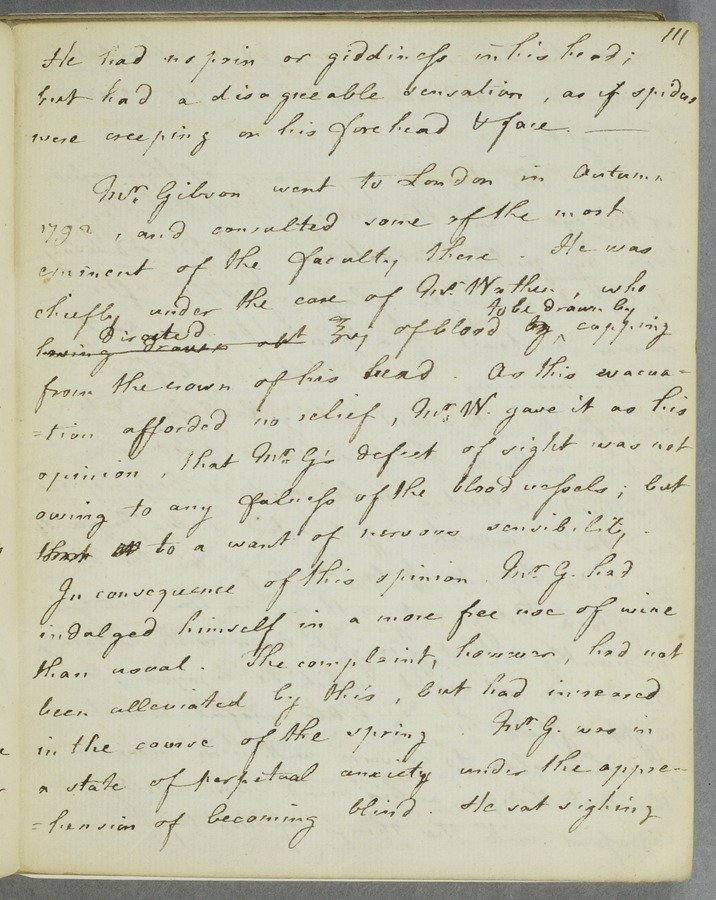 111
He had no pain or giddiness in his head;
but had a disagreeable sensation, as if spiders
were creeping on his forehead & face. —
Mr. Gibson went to London in Autumn
1792, and consulted some of the most
eminent of the faculty there. He was
chiefly under the care of Mr. Wathen, who
directed to be drawn by
having drawn out ℥vj of blood by ^ cupping
from the crown of his head. As this evacua=
=tion afforded no relief, Mr. W. gave it as his
opinion, that Mr. G's defect of sight was not
owing to any fulness of the blood vessels; but
to a want of nervous sensibility.
In consequence of this opinion Mr. G. had
indulged himself in a more free use of wine
than usual. The complaint, however, had not
been alleviated by this, but had increased
in the course of the spring. Mr. G. was in
a state of perpetual anxiety under the appre=
=hension of becoming blind. He sat sighing